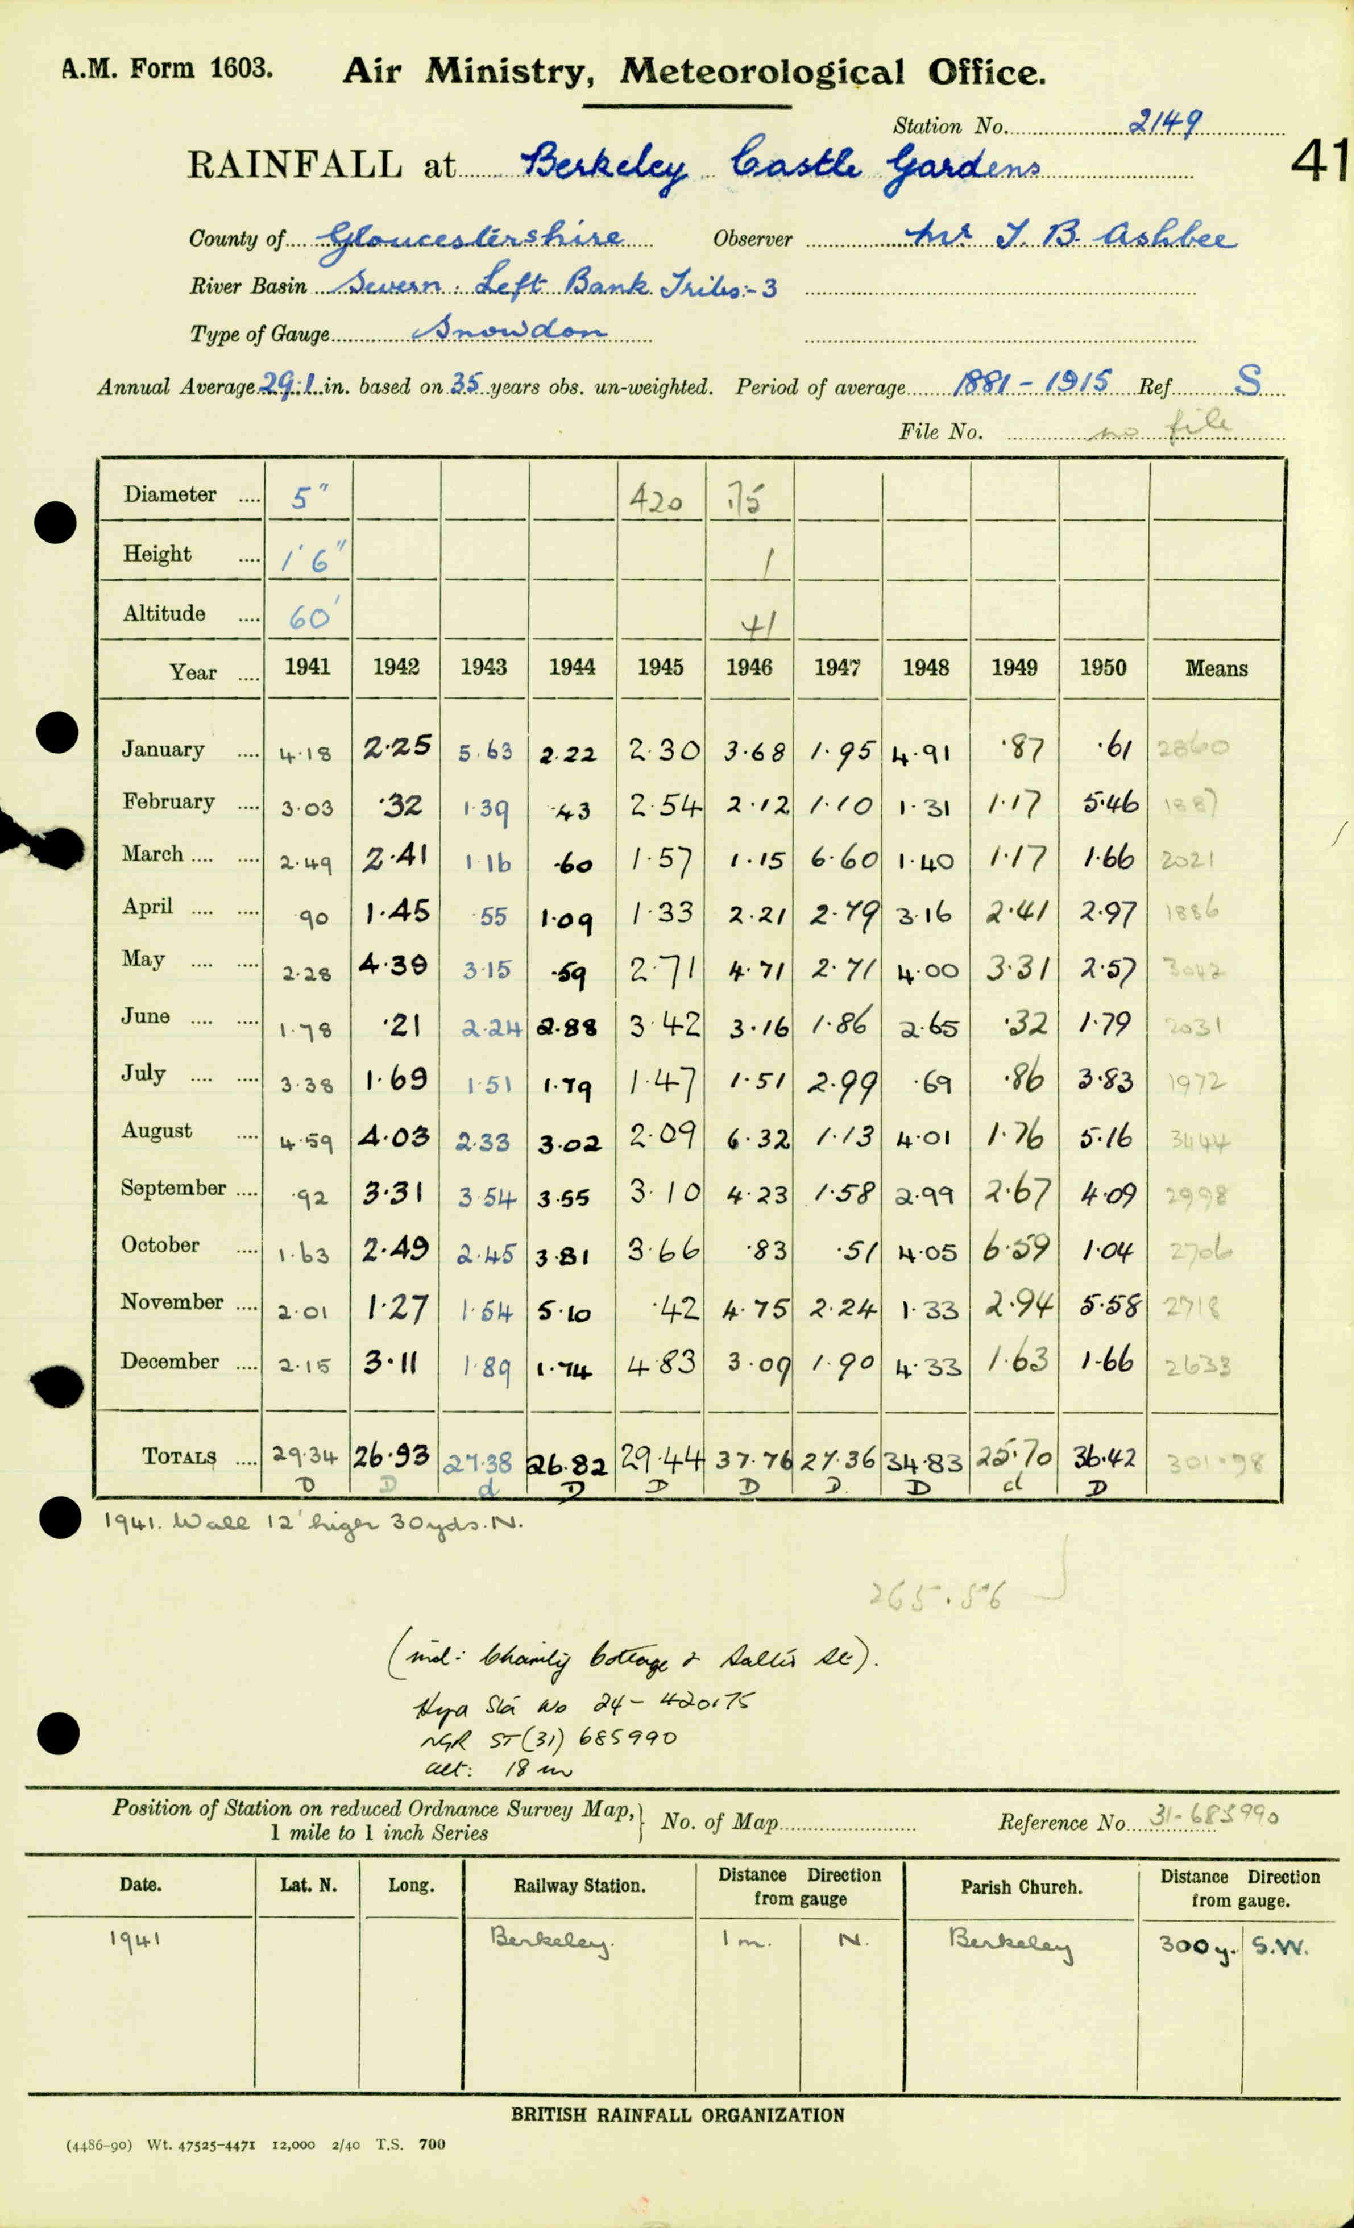 A.M. Form 1603. Air Ministry, Meteorological Office.
Station No. 2149
41
RAINFALL at Berkeley Castle Gardens
County of Gloucestershire Observer Mr J. B. Ashbee
River Basin Severn: Left Bank Tribs:-3
Type of Gauge Snowdon
Annual Average 29.1 in. based on 35 years obs. un-weighted. Period of average 1881-1915 Ref S
File No. no file
Diameter .... 5" 420 .75
Height .... 1'6" 1
Altitude .... 60' 41
Year .... 1941 1942 1943 1944 1945 1946 1947 1948 1949 1950 Means
January .... 4.18 2.25 5.63 2.22 2.30 3.68 1.95 4.91 .87 .61 2860
February .... 3.03 .32 1.39 .43 2.54 2.12 1.10 1.31 1.17 5.46 1887
March .... .... 2.49 2.41 1.16 .60 1.57 1.15 6.60 1.40 1.17 1.66 2021
April .... .... 90 1.45 .55 1.09 1.33 2.21 2.79 3.16 2.41 2.97 1886
May .... .... 2.28 4.39 3.15 .59 2.71 4.71 2.71 4.00 3.31 2.57 3042
June .... .... 1.78 .21 2.24 2.88 3.42 3.16 1.86 2.65 .32 1.79 2031
July .... .... 3.38 1.69 1.51 1.79 1.47 1.51 2.99 .69 .86 3.83 1972
August .... 4.59 4.03 2.33 3.02 2.09 6.32 1.13 4.01 1.76 5.16 3444
September .... .92 3.31 3.54 3.55 3.10 4.23 1.58 2.99 2.67 4.09 2998
October .... 1.63 2.49 2.45 3.81 3.66 .83 .51 4.05 6.59 1.04 2706
November .... 2.01 1.27 1.54 5.10 .42 4.75 2.24 1.33 2.94 5.58 2718
December .... 2.15 3.11 1.89 1.74 4.83 3.09 1.90 4.33 1.63 1.66 2633
TOTALS .... 29.34 26.93 27.38 26.82 29.44 37.76 27.36 34.83 25.70 36.42 301.98
D D d D D D D D d D
1941. Wall 12' high 30yds. N.
265.56
(incl: Charity Cottage & Salter St).
Hyd Sta No 24-420175
NGR ST(31) 685990
alt: 18 m
Position of Station on reduced Ordnance Survey Map, 1 mile to 1 inch Series } No. of Map Reference No. 31-685990
Date. Lat. N. Long. Railway Station. Distance Direction from gauge Parish Church. Distance Direction from gauge.
1941 Berkeley. 1 m. N. Berkeley 300y. S.W.
BRITISH RAINFALL ORGANIZATION
(4486-90) Wt. 47525-4471 12,000 2/40 T.S. 700